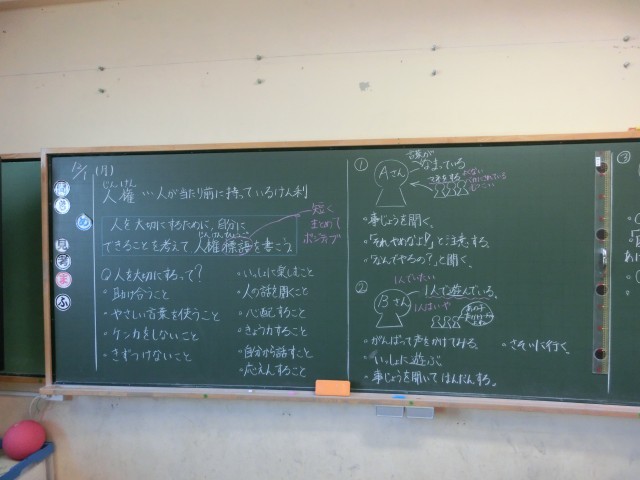 12/1 (月)
じんけん
人権…人が当たり前に持っているけん利
め
人を大切にするために、自分に
できることを考えて人権標語を書こう。
じんけんひょうご
短く
まとめて
ポジティブ
Q 人を大切にするって?
・助け合うこと
・やさしい言葉を使うこと
・ケンカをしないこと
・きずつけないこと
・いっしょに楽しむこと
・人の話を聞くこと
・心配すること
・きょう力すること
・自分から話すこと
・応えんすること
見
考
ま
ふ
①
Aさん
言葉が
なまっている
・事じょうを聞く。
・「それ、やめなよ!」と注意する。
・「なんでやるの?」と聞く。
②
1人でいたい
Bさん
1人で遊んでいる。
1人はいや
・がんばって声をかけてみる。
・さそいに行く。
・いっしょに遊ぶ
・事じょうを聞いてはんだんする。
③